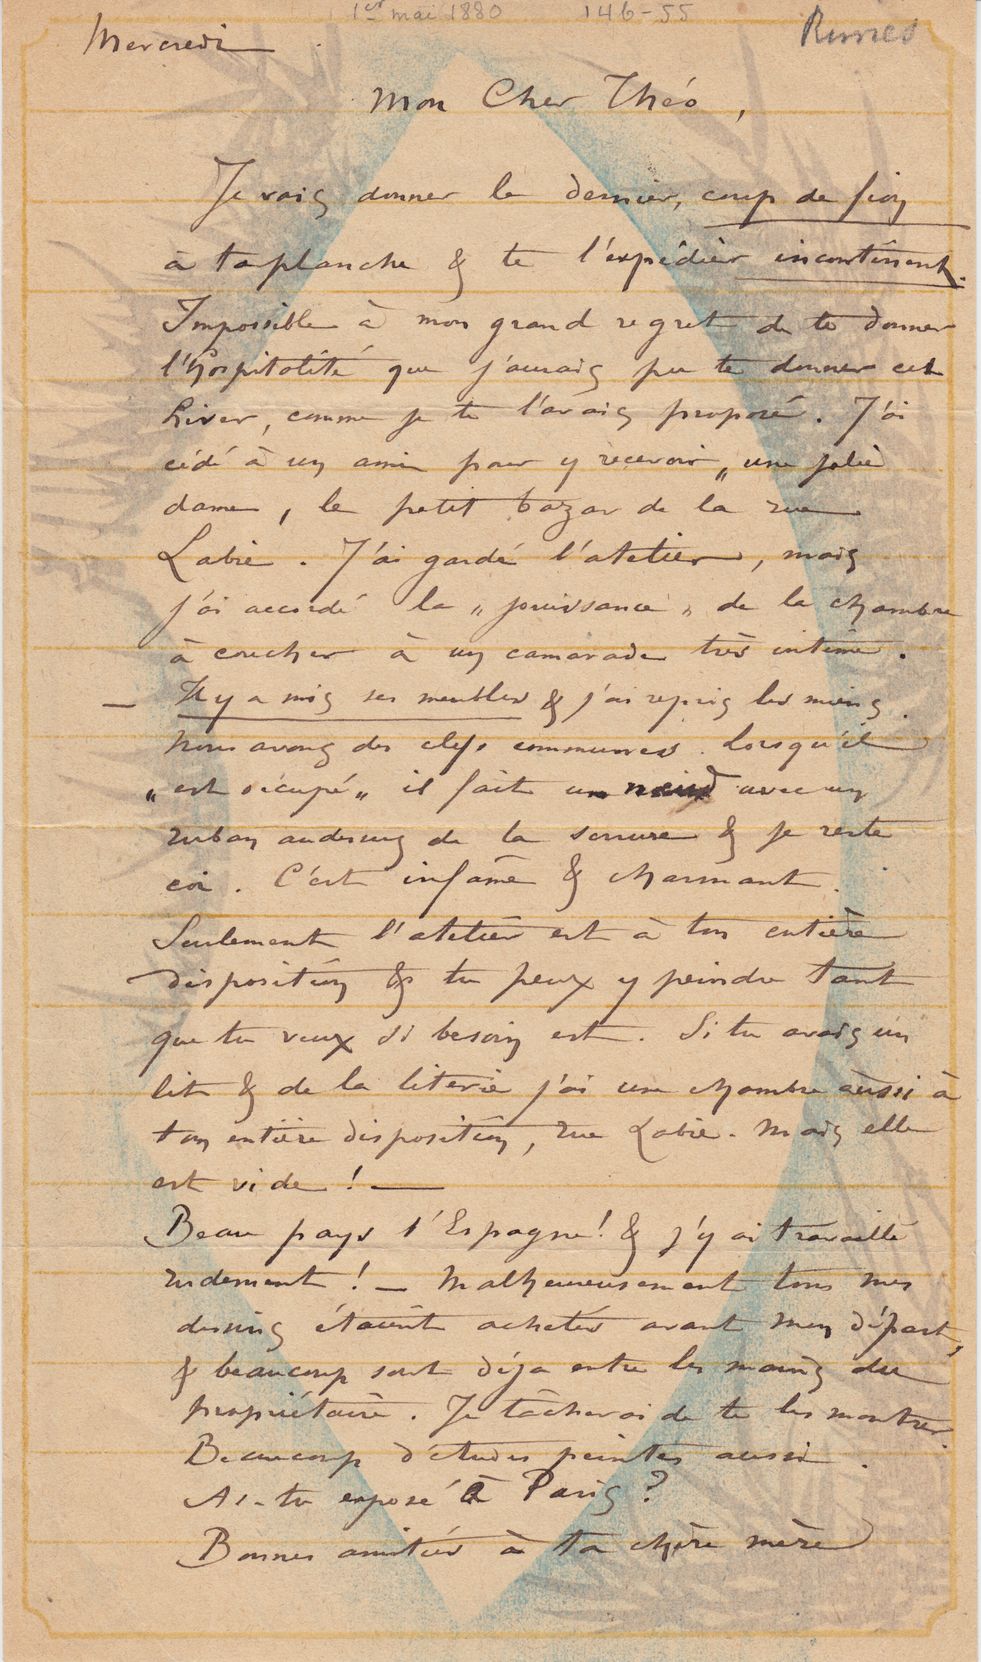 1er mai 1880 146-55
Mercredi
Mon Cher Théo,
Je vais donner le dernier, coup de fion
à ta planche & te l'expédier incontinent.
Impossible à mon grand regret de te donner
l'hospitalité que j'aurais pu te donner cet
hiver, comme je te l'avais proposé. J'ai
cédé à un ami pour y recevoir „ une jolie
dame, le petit bazar de la rue
Labie. J'ai gardé l'atelier, mais
j'ai accordé la „ jouissance „ de la chambre
à coucher à un camarade très intime.
— Il y a mis ses meubles & j'ai repris les miens.
Nous avons des clefs communes. Lorsqu'il
„ est occupé „ il fait un nœud avec un
ruban au dessus de la serrure & je reste
coi. C'est infâme & charmant.
Seulement l'atelier est à ton entière
disposition & tu peux y peindre tant
que tu veux si besoin est. Si tu avais un
lit & de la literie j'ai une chambre aussi à
ton entière disposition, rue Labie. Mais elle
est vide ! —
Beau pays l'Espagne ! & j'y ai travaillé
rudement ! — Malheureusement tous mes
dessins étaient achetés avant mon départ,
& beaucoup sont déja entre les mains du
propriétaire. Je tâcherai de te les montrer.
Beaucoup d'études peintes aussi.
As-tu exposé à Paris ?
Bonnes amitiés à ta chère mère